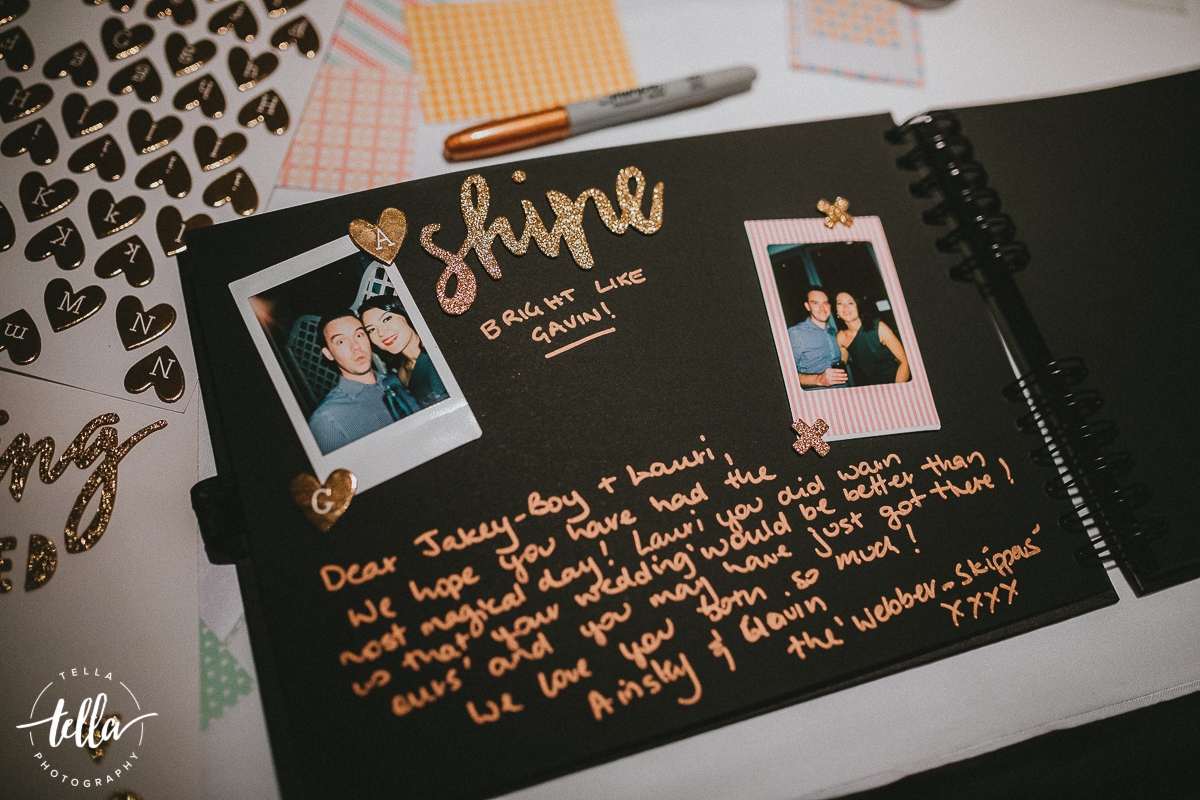 shine
BRIGHT LIKE
GAVIN!
A
G
Dear Jakey-Boy + Lauri,
We hope you have had the
most magical day! Lauri you did warn
us that 'your wedding would be better than
ours' and you may have just got there!
We love you both so much!
Ainsley & Gavin
the 'Webber-Skippers'
xxxx
K
K
K
K
M
N
N
ing
ED
TELLA
tella
PHOTOGRAPHY